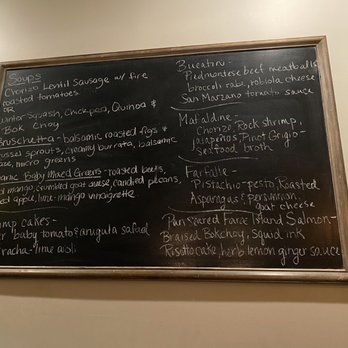 Soups
Chorizo Lentil Sausage w/ fire
roasted tomatoes
OR
Squash, Chickpea, Quinoa &
Bok Choy
Bruschetta - balsamic roasted figs &
sprouts, creamy burrata, balsamic
micro greens
Baby Mixed Greens - roasted beets,
mango, crumbled goat cheese, candied pecans,
apple, lime-mango vinaigrette
cakes -
baby tomato & arugula salad
lime aioli
Bucatini
Piedmontese beef meatballs
broccoli rabe, robiola cheese
San Marzano tomato sauce
Mafaldine -
Chorizo, Rock shrimp,
jalapeños, Pinot Grigio -
seafood broth
Farfalle -
Pistachio-pesto, Roasted
Asparagus & persimmon,
goat cheese
Pan Seared Faroe Island Salmon -
Braised Bokchoy, squid ink
Risotto cake, herb lemon ginger sauce